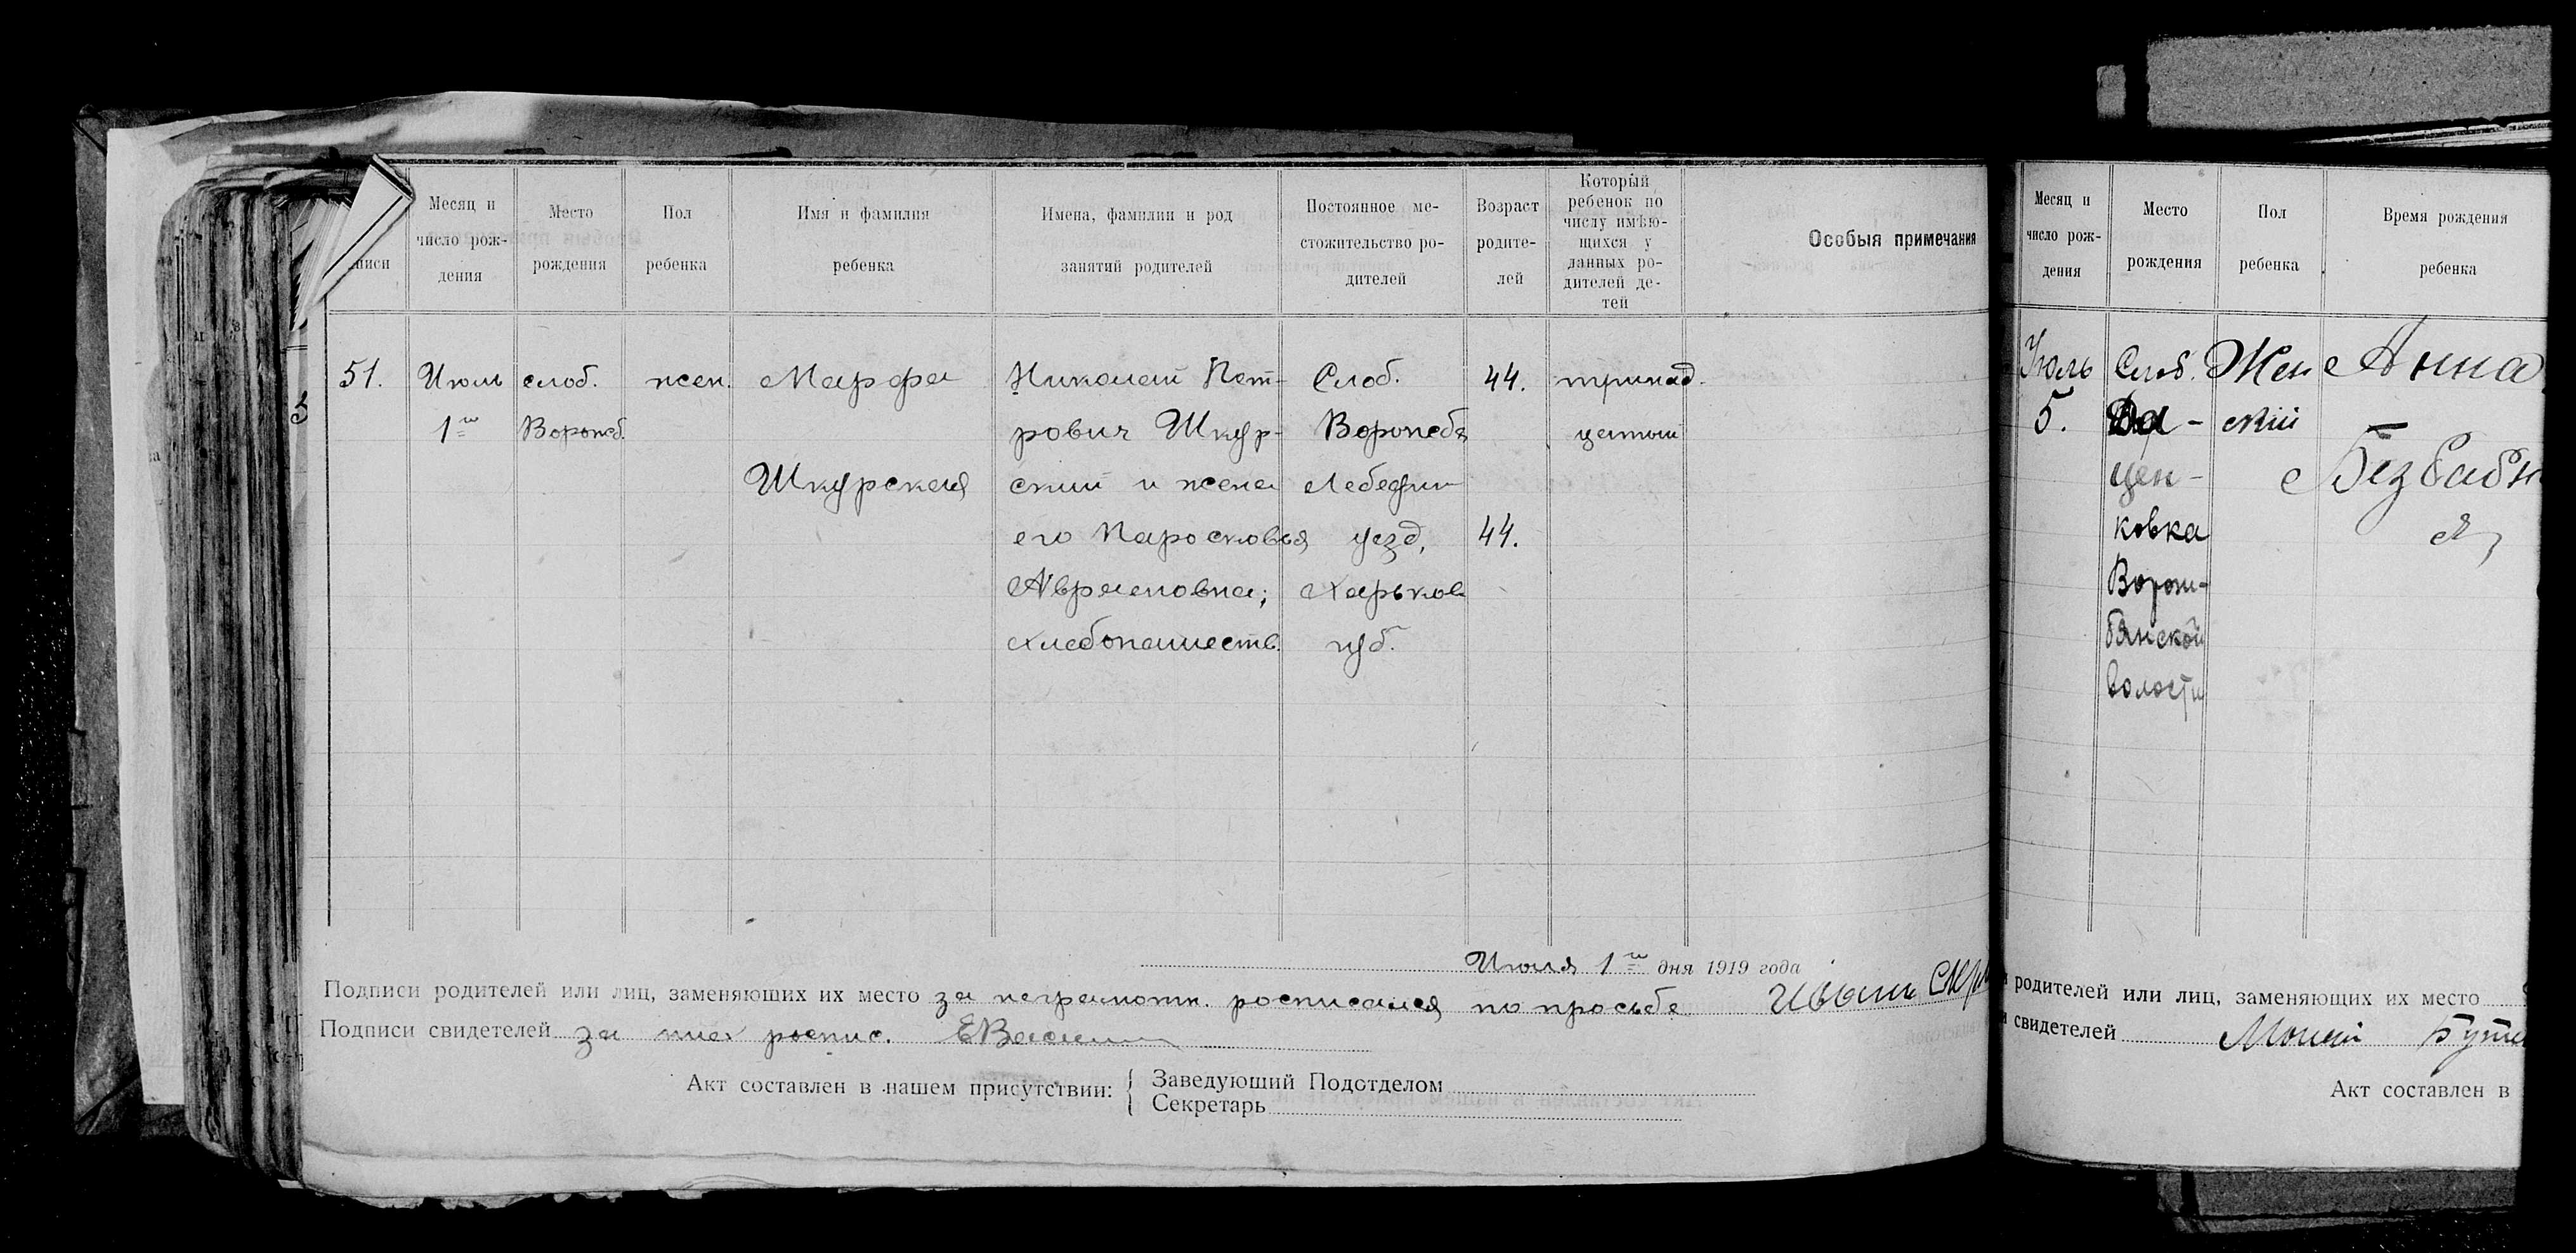 писи
Месяц и
число рож-
дения
Место
рождения
Пол
ребенка
Имя и фамилия
ребенка
Имена, фамилии и род
занятий родителей
Постоянное ме-
стожительство ро-
дителей
Возраст
родите-
лей
Который
ребенок по
числу имѣю-
щихся у
данных ро-
дителей де-
тей
Особыя примечания
51.
Июль
1го
слоб.
Ворожеб.
жен.
Марфа
Шкурская
Николай Пет-
рович Шкур-
ский и жена
его Паросковья
Авраамовна;
хлебопашеств.
Слоб.
Ворожеба
Лебедин
уезд,
Харьков
губ.
44.
44.
тринад.
цатый
Июля 1го дня 1919 года
Подписи родителей или лиц, заменяющих их место за неграмотн. росписался по просьбе Иван
Подписи свидетелей за них роспис.
Акт составлен в нашем присутствии: { Заведующий Подотделом
Секретарь
Месяц и
число рож-
дения
Место
рождения
Пол
ребенка
Время рождения
ребенка
Июль
5.
Слоб.
Да-
цен-
ковка
Ворож-
бянской
волости
Жен
ский
Анна
родителей или лиц, заменяющих их место
и свидетелей Моисей
Акт составлен в